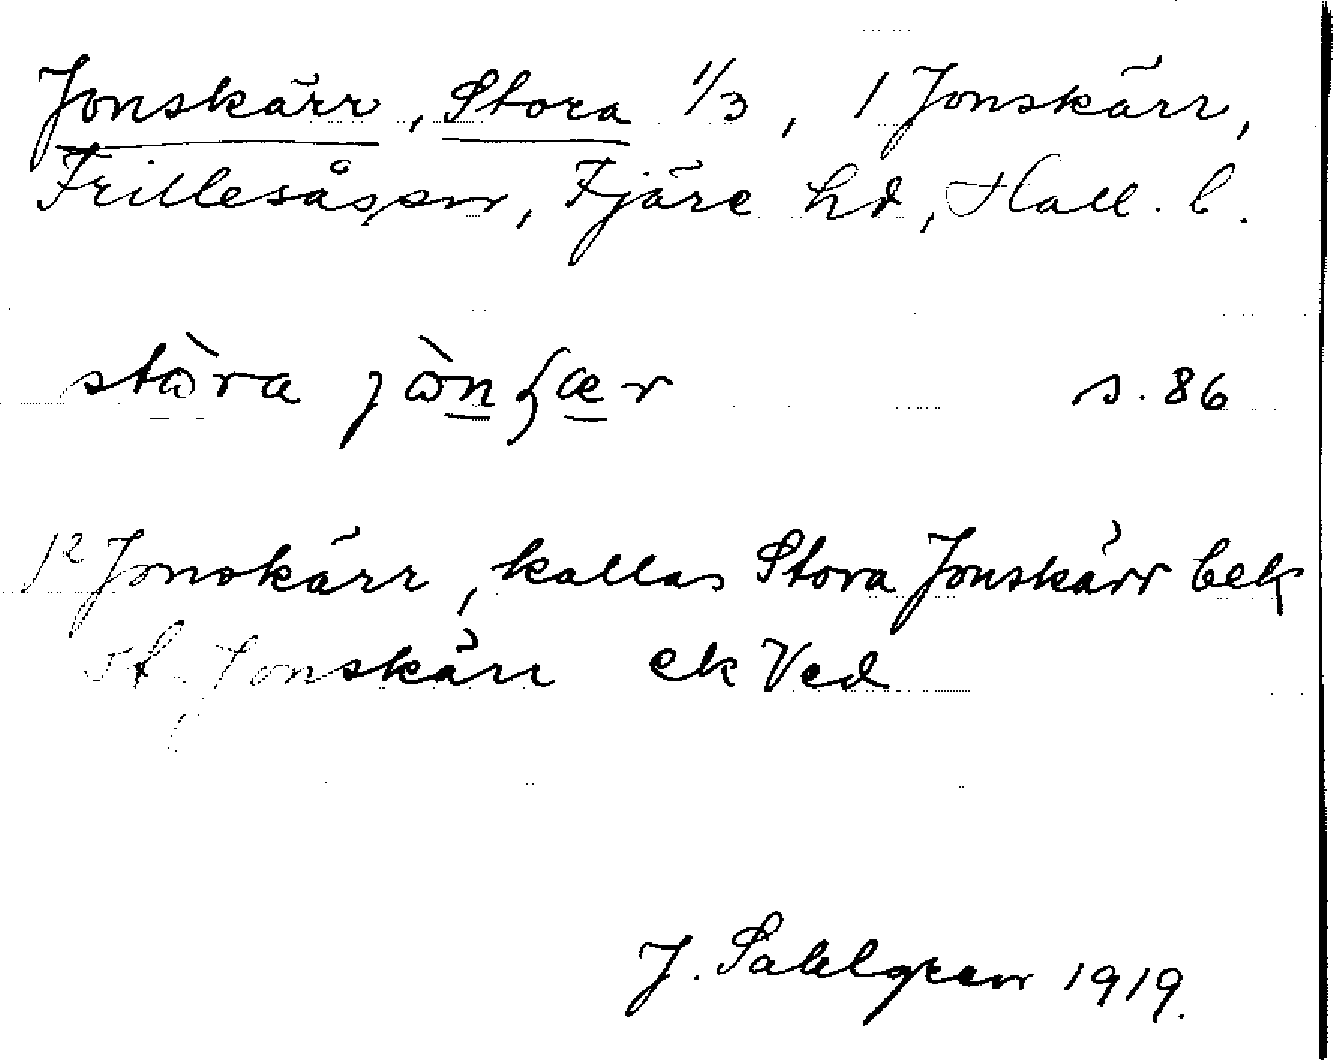 Jonskärr, Stora 1/3, 1 Jonskärr,
Frillesåsen, Fjäre hd, Hall. l.
stɷ̀ra jɷ̀nʂær s. 86
Jonskärr, kallas Stora Jonskärr bek
st. Jonskärr ek Ved
J. Sahlgren 1919.